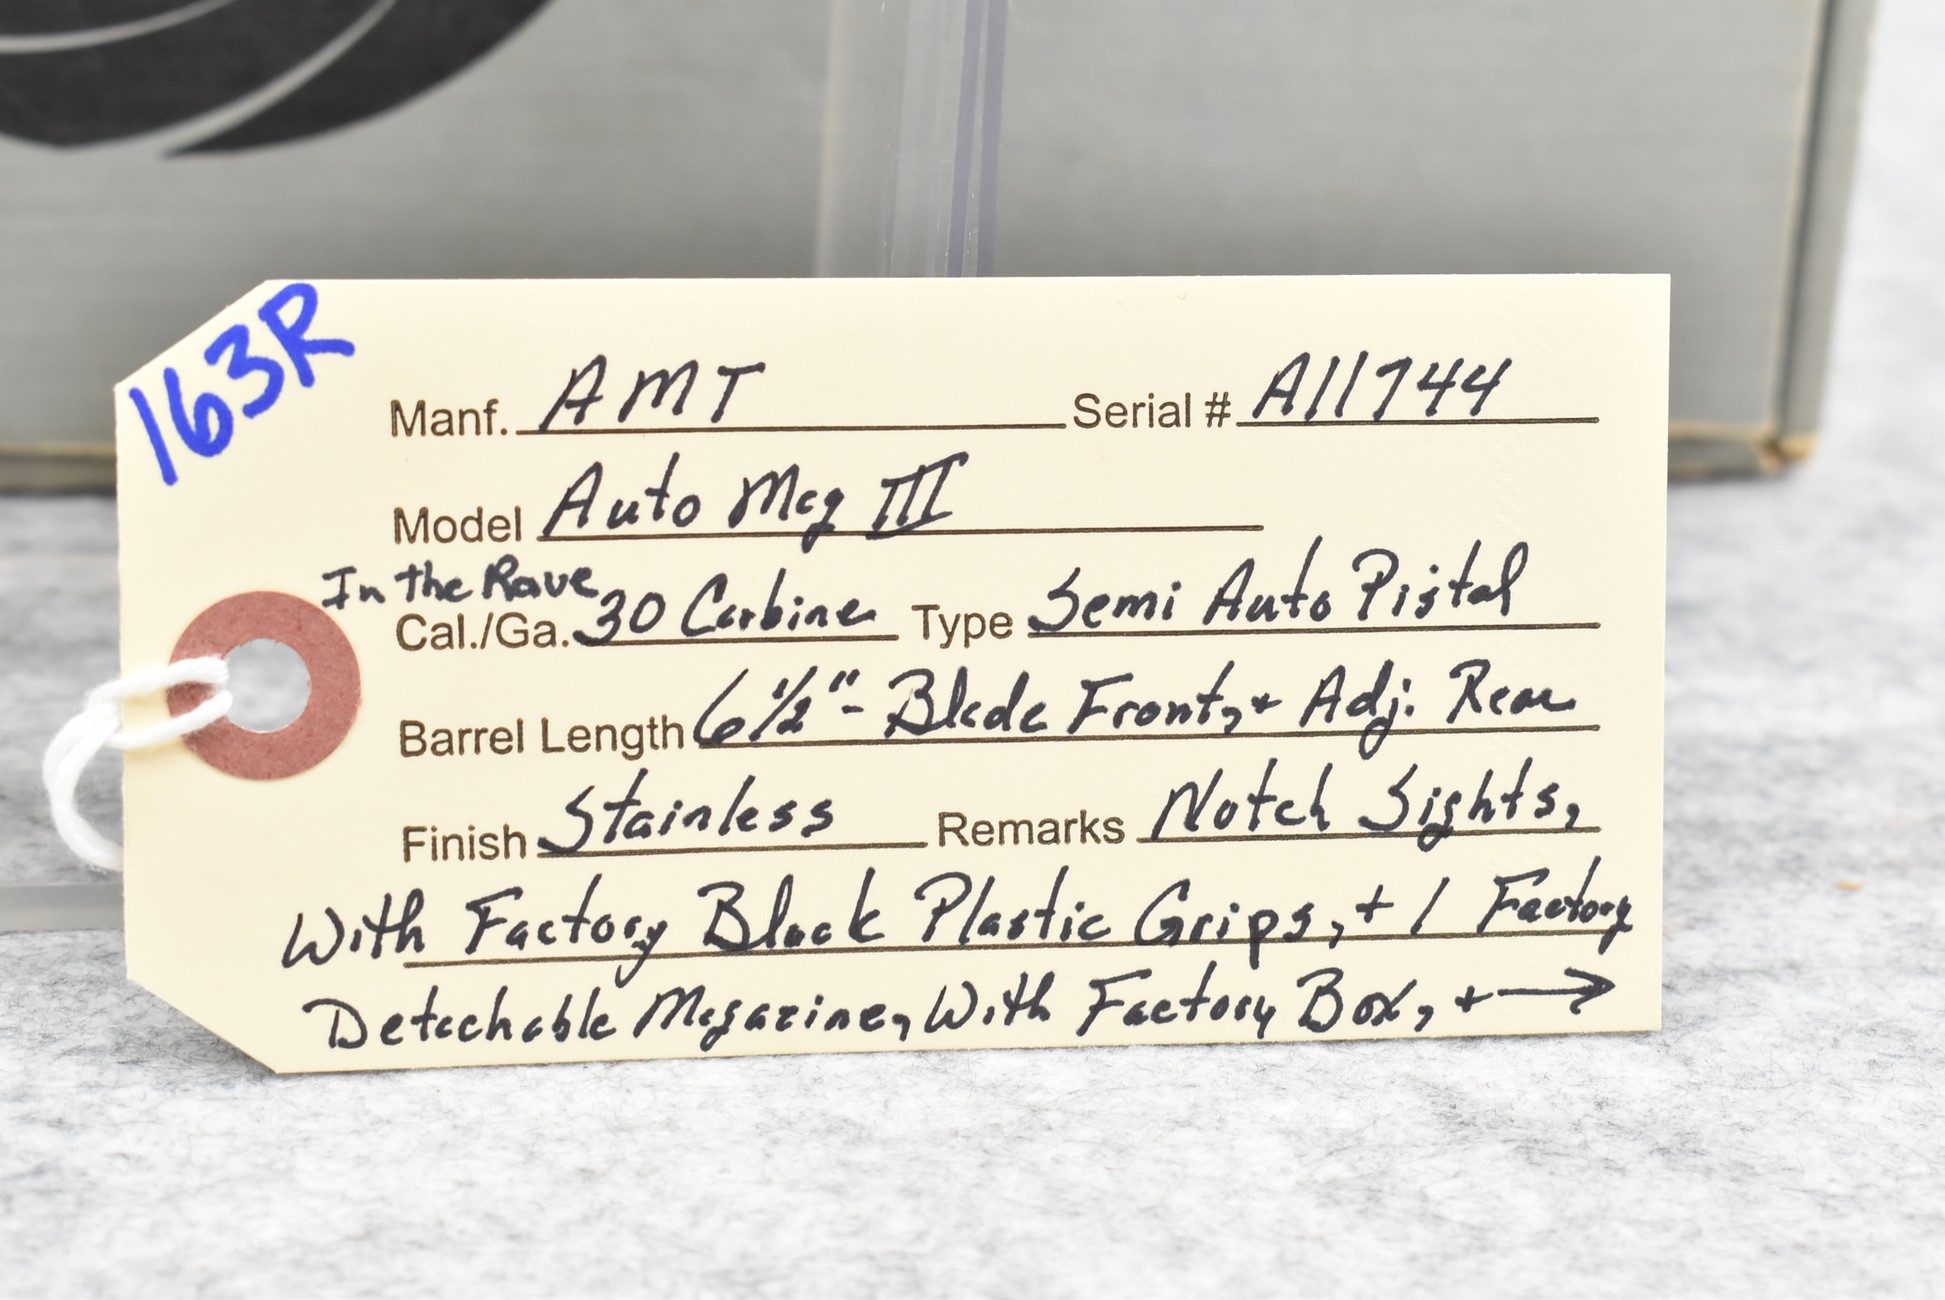 163R
Manf. AMT Serial # A11744
Model Auto Mag III
In the Rare
Cal./Ga. 30 Carbine Type Semi Auto Pistol
Barrel Length 6 1/2" - Blade Front, + Adj. Rear
Finish Stainless Remarks Notch Sights,
With Factory Black Plastic Grips, + 1 Factory
Detachable Magazine, With Factory Box, + →